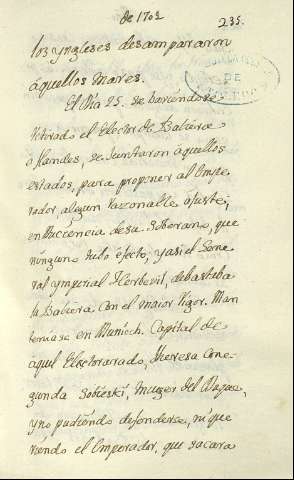 de 1702
235.
los yngleses desampararon
aquellos mares.
DE
El dia 25. se haviendose
retirado el Elector de Baviera
à Flandes, se juntaron aquellos
estados, para proponer al Empe-
rador, algun razonable ajuste,
en Audiencia de su soberano, que
ninguno tubo efecto, y asi el Gene-
ral ymperial Herbevil, debastaba
la Babiera con el maior vigor. Man
teniase en Munich. Capital de
aquel Electorado, theresa Cone-
gunda Sobieski, muger del Duque,
y no pudiendo defenderse, ni que
riendo el Emperador, que sacara